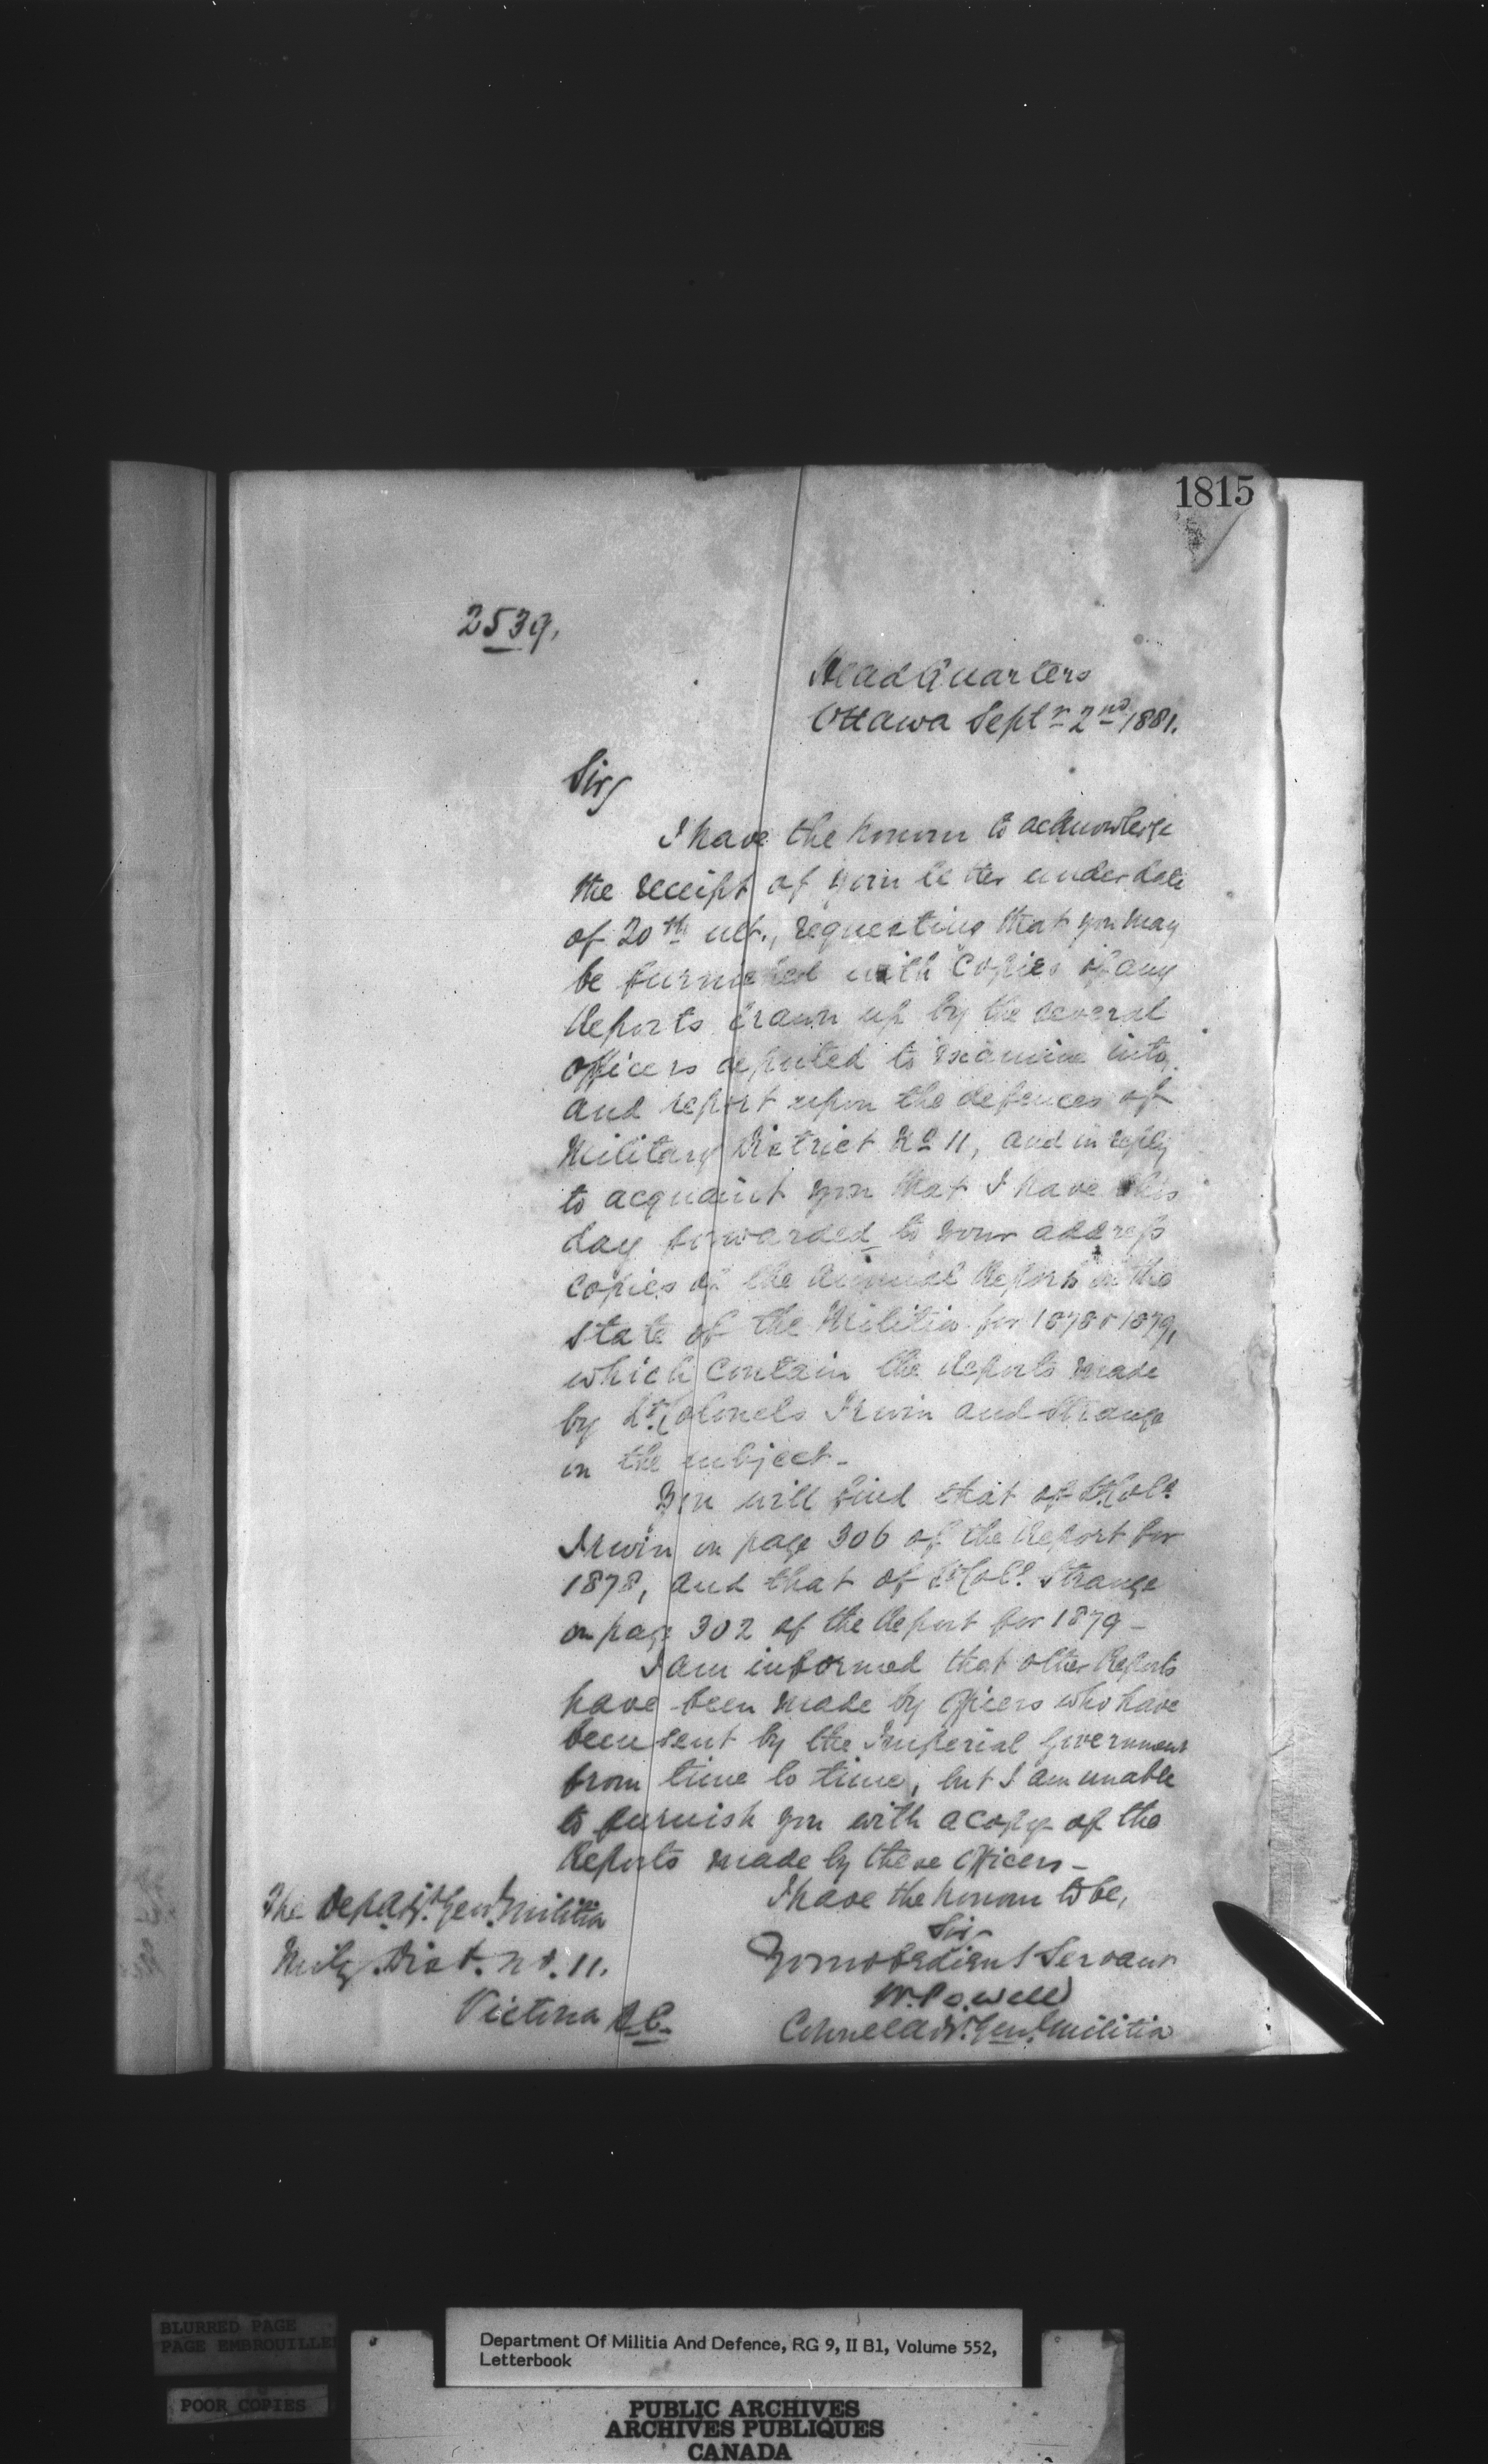 1815
2539.
Head Quarters
Ottawa Septr 2nd 1881.
Sir,
I have the honour to acknowledge
the receipt of your letter under date
of 20th ult., requesting that you may
be furnished with copies of any
Reports drawn up by the several
officers deputed to examine into,
and report upon the defences of
Military District No 11, and in reply
to acquaint you that I have this
day forwarded to your address
copies of the Annual Reports on the
state of the Militia for 1878 & 1879,
which contain the reports made
by Lt. Colonels Irwin and Strange
on the subject.-
You will find that of Lt. Col.
Irwin on page 306 of the Report for
1878, and that of Lt. Col. Strange
on page 302 of the Report for 1879-
I am informed that other Reports
have been made by Officers who have
been sent by the Imperial Government
from time to time, but I am unable
to furnish you with a copy of the
Reports made by these Officers-
I have the honour to be,
Sir
Your obedient Servant
W. Powell
Colonel Adjt. Genl. Militia
The Dep. Adjt. Genl. Militia
Mily. Dist. No. 11.
Victoria B.C.
BLURRED PAGE
PAGE EMBROUILLE
POOR COPIES
Department Of Militia And Defence, RG 9, II B1, Volume 552,
Letterbook
PUBLIC ARCHIVES
ARCHIVES PUBLIQUES
CANADA